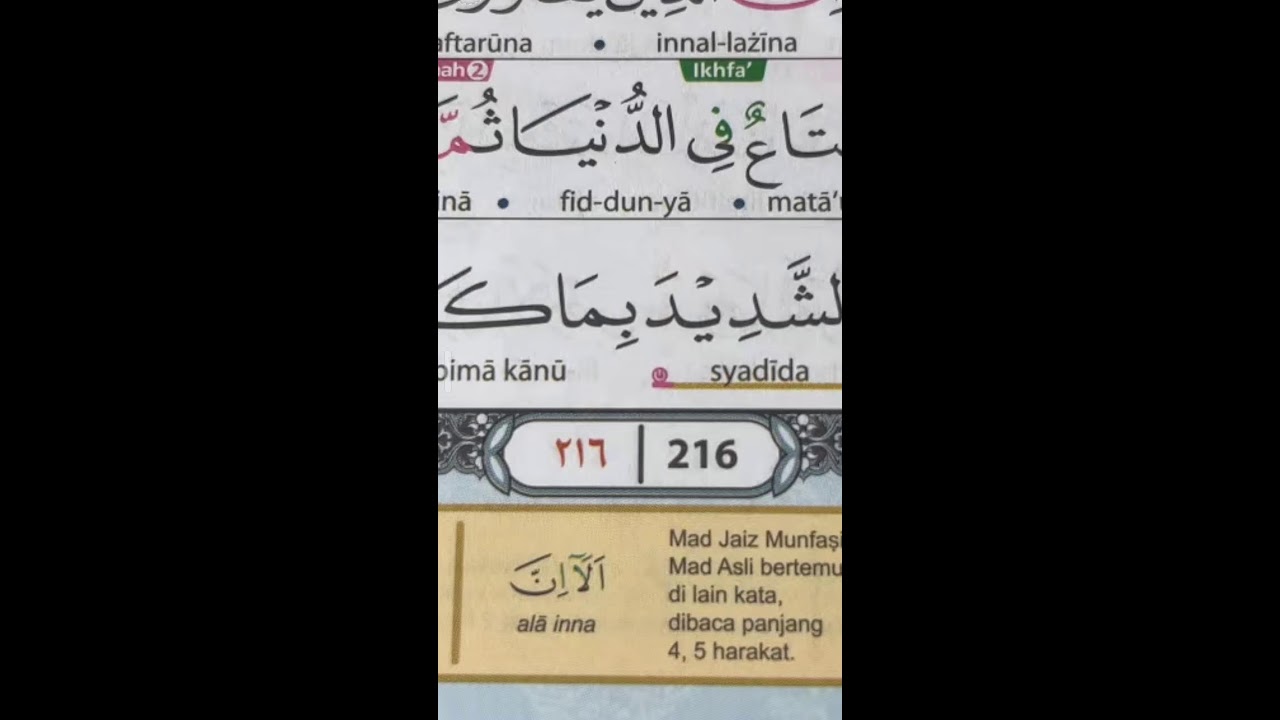 aftarūna • innal-lażīna
Ikhfa’
مَتَاعٌ فِى الدُّنْيَا ثُمَّ
fid-dun-yā •
الشَّدِيْدَ بِمَا كَ
bimā kānū syadīda
٢١٦ | 216
اَلَآ اِنَّ
alā inna
Mad Jaiz Munfaṣi
Mad Asli bertemu
di lain kata,
dibaca panjang
4, 5 harakat.